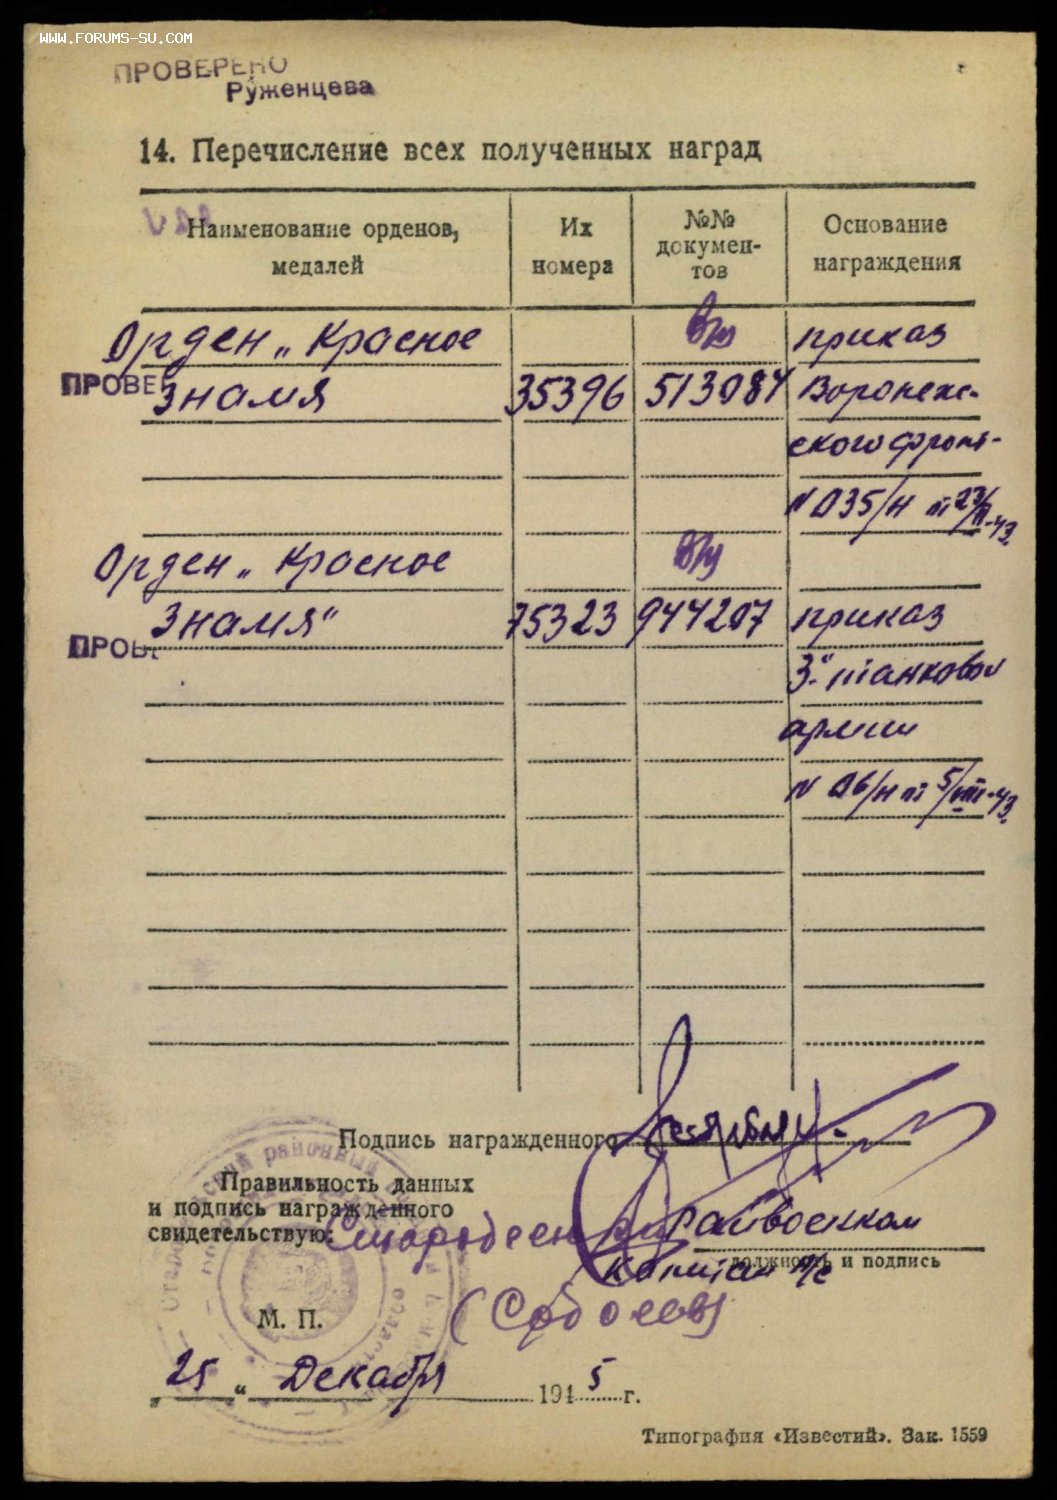 WWW.FORUMS-SU.COM
ПРОВЕРЕНО
Руженцева
14. Перечисление всех полученных наград
Наименование орденов, медалей
Их номера
№№ докумен-тов
Основание награждения
Орден „Красное
в/у
приказ
ПРОВЕР
знамя
35396
513084
Воронеж-
ского фрон-
N 035/н
23/
-43.
Орден „Красное
в/у
Знамя"
75323
944207
приказ
ПРОВЕ
3й танковой
армии
N 06/н от 5/VIII-43.
Подпись награжденного
Правильность данных
и подпись награжденного
свидетельствую:
райвоенком
должность и подпись
Капитан
М. П.
(Соболев)
„ 25 " Декабря 1945 г.
Типография «Известий». Зак. 1559